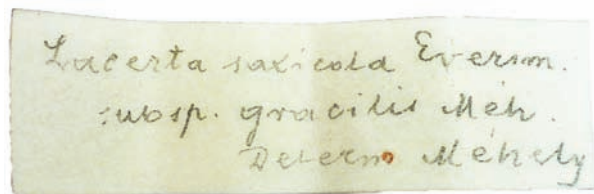 Lacerta saxicola Eversm.
subsp. gracilis Méh.
Determ Méhely